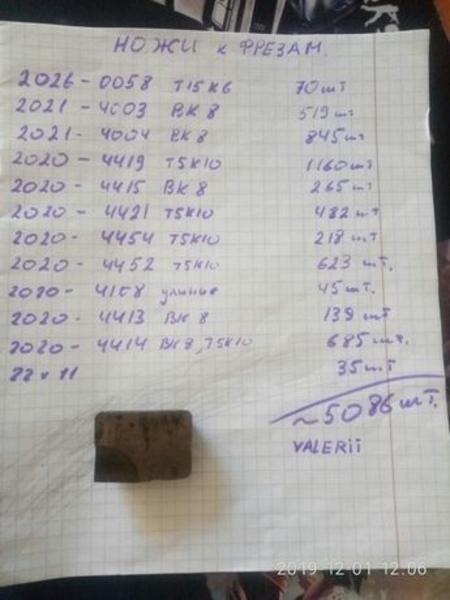 НОЖИ к ФРЕЗАМ.
2026-0058 Т15К6 70шт
2021-4003 ВК8 519шт
2021-4004 ВК8 845шт
2020-4419 Т5К10 1160шт
2020-4415 ВК8 265шт
2020-4421 Т5К10 482шт
2020-4454 Т5К10 218шт
2020-4452 Т5К10 623шт.
2020- 45шт.
2020-4413 ВК8 139шт
2020-4414 ВК8,Т5К10 685шт.
22×11 35шт
~5086шт.
VALERii
2019-12-01 12:06